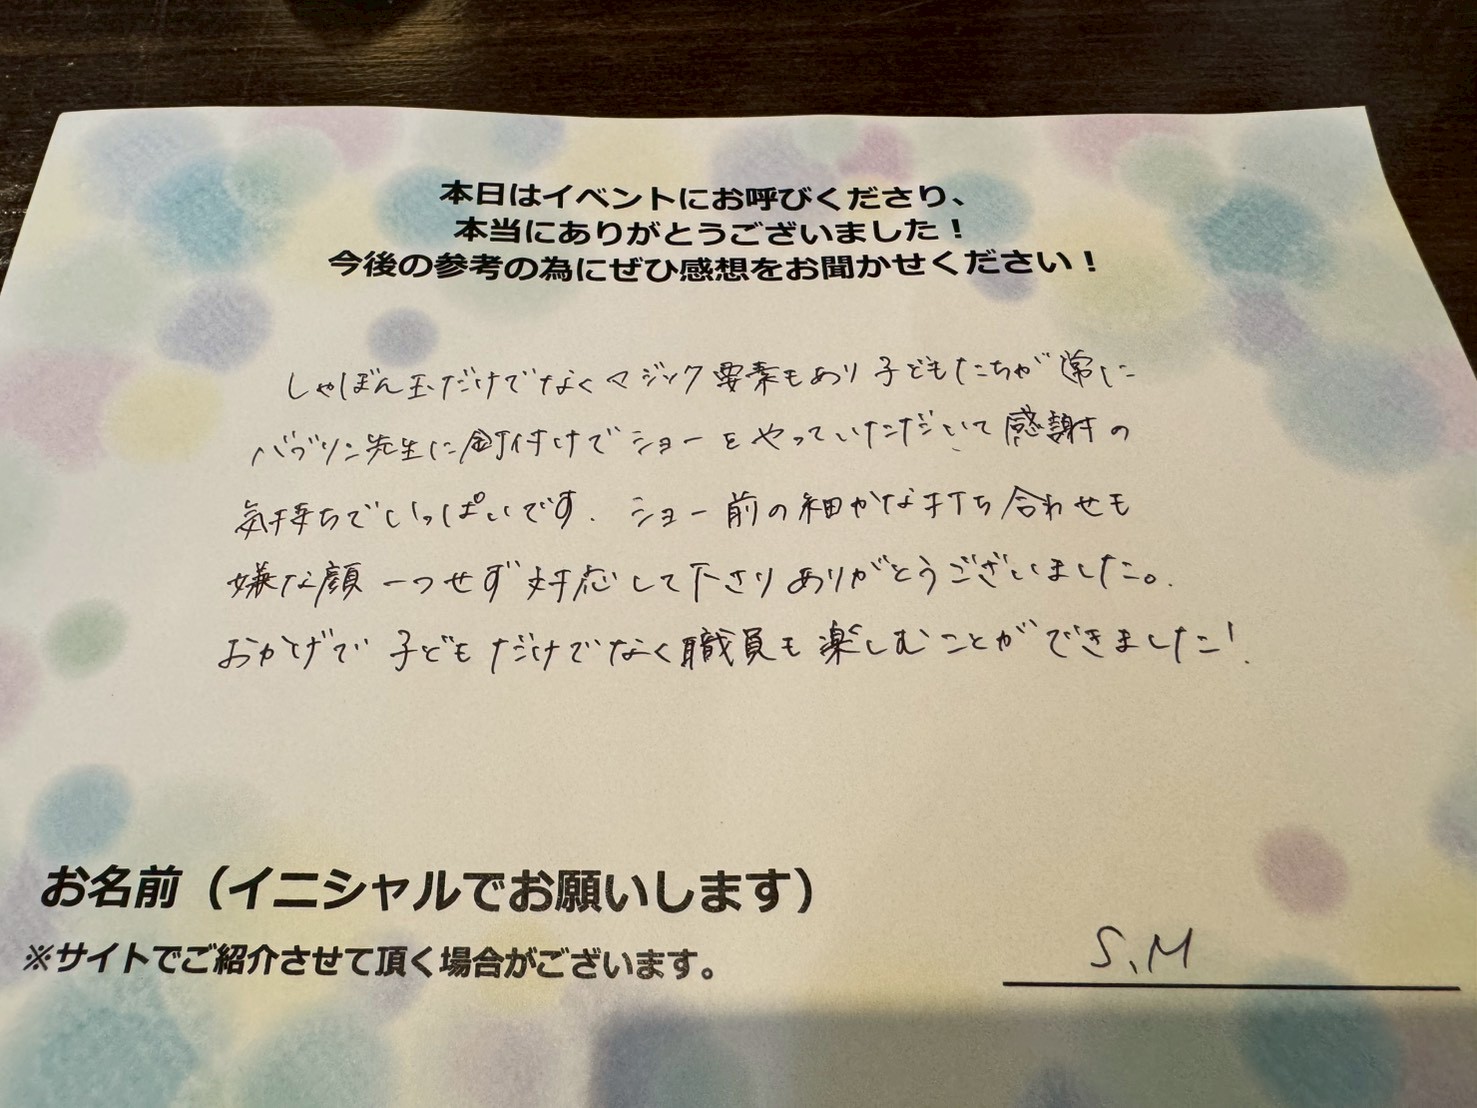 本日はイベントにお呼びくださり、
本当にありがとうございました！
今後の参考の為にぜひ感想をお聞かせください！
しゃぼん玉だけでなくマジック要素もあり子どもたちが常に
バブリン先生に釘付けでショーをやっていただいて感謝の
気持ちでいっぱいです。ショー前の細かな打ち合わせも
嫌な顔一つせず対応して下さりありがとうございました。
おかげで子どもだけでなく職員も楽しむことができました!
お名前（イニシャルでお願いします）
※サイトでご紹介させて頂く場合がございます。
S.M